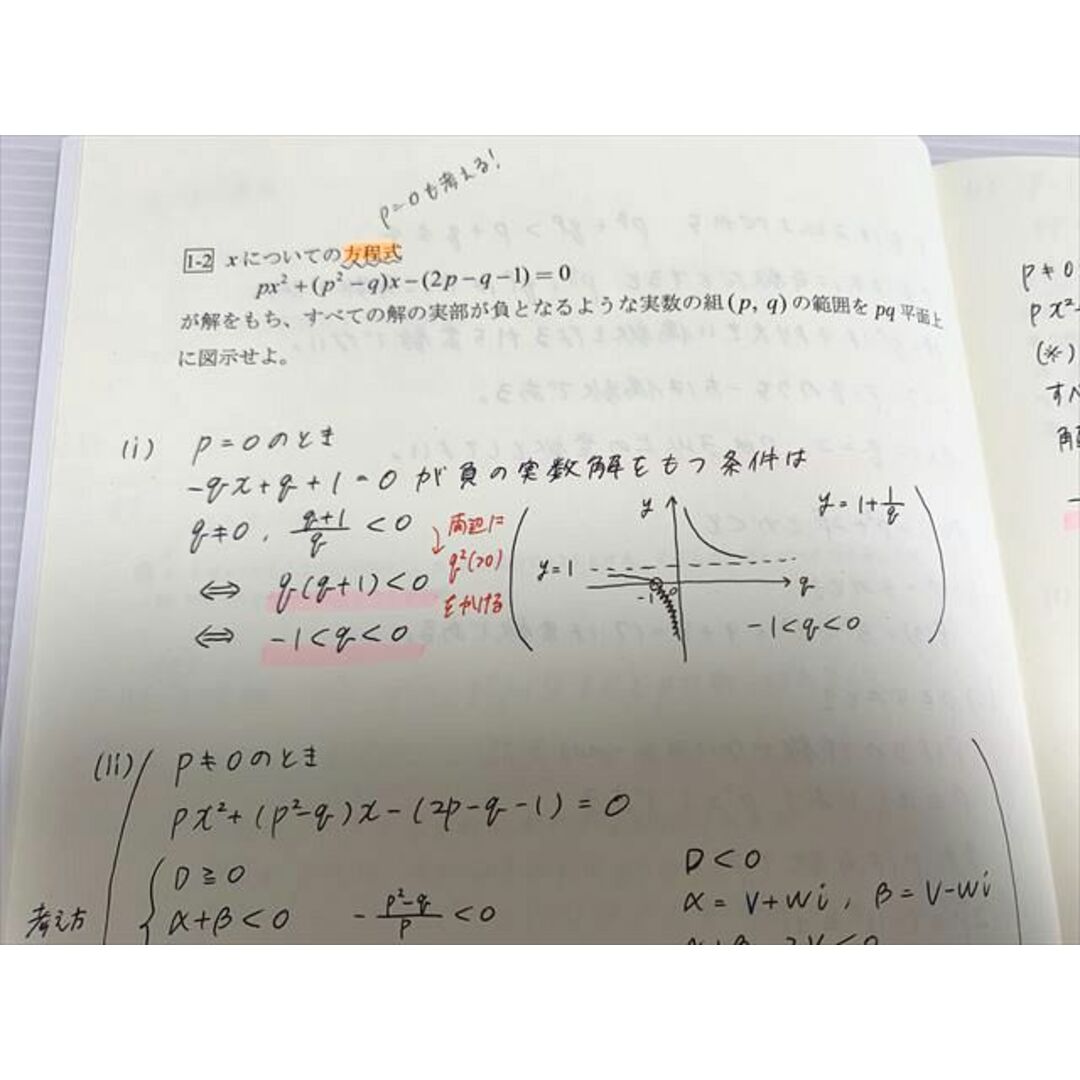 p=0も考える!
1-2 xについての方程式
px²+(p²−q)x−(2p−q−1)=0
が解をもち、すべての解の実部が負となるような実数の組(p, q)の範囲をpq平面上
に図示せよ。
(i) p=0のとき
-qx+q+1=0が負の実数解をもつ条件は
q≠0, (q+1)/q <0
⇔ q(q+1)<0
⇔ -1<q<0
両辺に
q²(>0)
をかける
y
y=1+1/q
y=1
-1
0
q
-1<q<0
(ii) p≠0のとき
px²+(p²-q)x-(2p-q-1)=0
考え方
D≧0
α+β<0 -(p²-q)/p <0
D<0
α=V+Wi, β=V-Wi
p≠0
px²
(※)
すべ